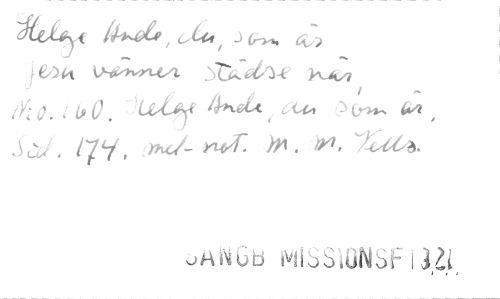 Helge Ande, du, som är
Jesu vänner städse när,
N:o. 160. Helge Ande, du som är,
Sid. 174. mel-not. M. M. Wells.
SANGB MISSIONSF 1321